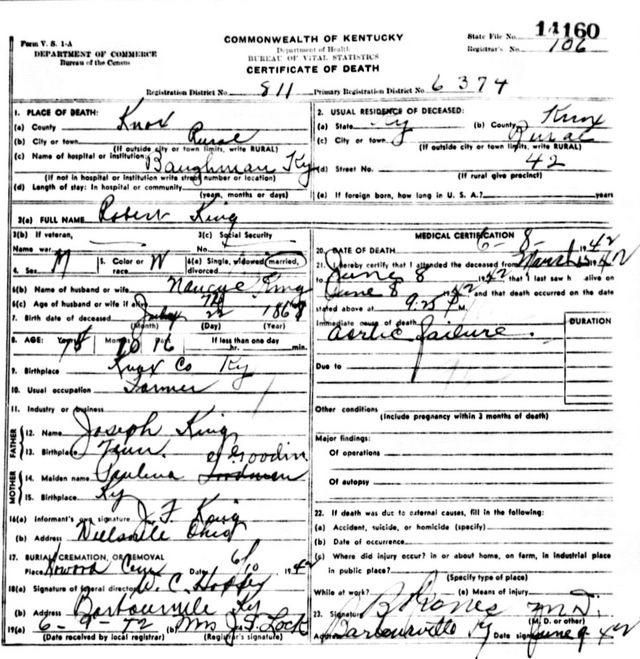 14160
Form V. S. 1-A
COMMONWEALTH OF KENTUCKY
State File No.
DEPARTMENT OF COMMERCE
Department of Health
Registrar's No. 106
Bureau of the Census
BUREAU OF VITAL STATISTICS
CERTIFICATE OF DEATH
Registration District No. 811 Primary Registration District No. 6374
1. PLACE OF DEATH:
(a) County Knox
(b) City or town Rural
(If outside city or town limits, write RURAL)
(c) Name of hospital or institution: Baughman Ky
(If not in hospital or institution write street number or location)
(d) Length of stay: In hospital or community
(years, months or days)
2. USUAL RESIDENCE OF DECEASED:
(a) State Ky (b) County Knox
(c) City or town Rural
(If outside city or town limits, write RURAL)
(d) Street No. 42
(If rural give precinct)
(e) If foreign born, how long in U. S. A.? years
3(a) FULL NAME Robert King
3(b) If veteran, 3(c) Social Security
Name war No.
4. Sex M 5. Color or race W 6(a) Single, widowed, married, divorced
6(b) Name of husband or wife Nancye King
6(c) Age of husband or wife if alive
7. Birth date of deceased July 22 1868
(Month) (Day) (Year)
8. AGE: Years Months Days If less than one day
10 16 hr. min.
9. Birthplace Knox Co Ky
10. Usual occupation Farmer
11. Industry or business
FATHER
12. Name Joseph King
13. Birthplace Tenn.
MOTHER
Goodin
14. Maiden name Paulina
15. Birthplace Ky
16(a) Informant's own signature J. F. King
(b) Address Ohio
17. BURIAL, CREMATION, OR REMOVAL
Place Cem Date 6/10 1942
18(a) Signature of funeral director
(b) Address Barbourville Ky
19(a) 6-9-42 (b) Mrs J. S. Lock
(Date received by local registrar) (Registrar's signature)
MEDICAL CERTIFICATION
20. DATE OF DEATH 6-8- 1942
21. I hereby certify that I attended the deceased from March 1942
to June 8 1942 that I last saw h alive on
June 8 1942 and that death occurred on the date
stated above at 9:25 P.M.
Immediate cause of death DURATION
aortic failure.
Due to
Other conditions
(Include pregnancy within 3 months of death)
Major findings:
Of operations
Of autopsy
22. If death was due to external causes, fill in the following:
(a) Accident, suicide, or homicide (specify)
(b) Date of occurrence
(c) Where did injury occur? in or about home, on farm, in industrial place
in public place?
(Specify type of place)
While at work? (e) Means of injury
23. Signature M.D.
(M. D. or other)
Address Barbourville Ky Date signed June 9 42